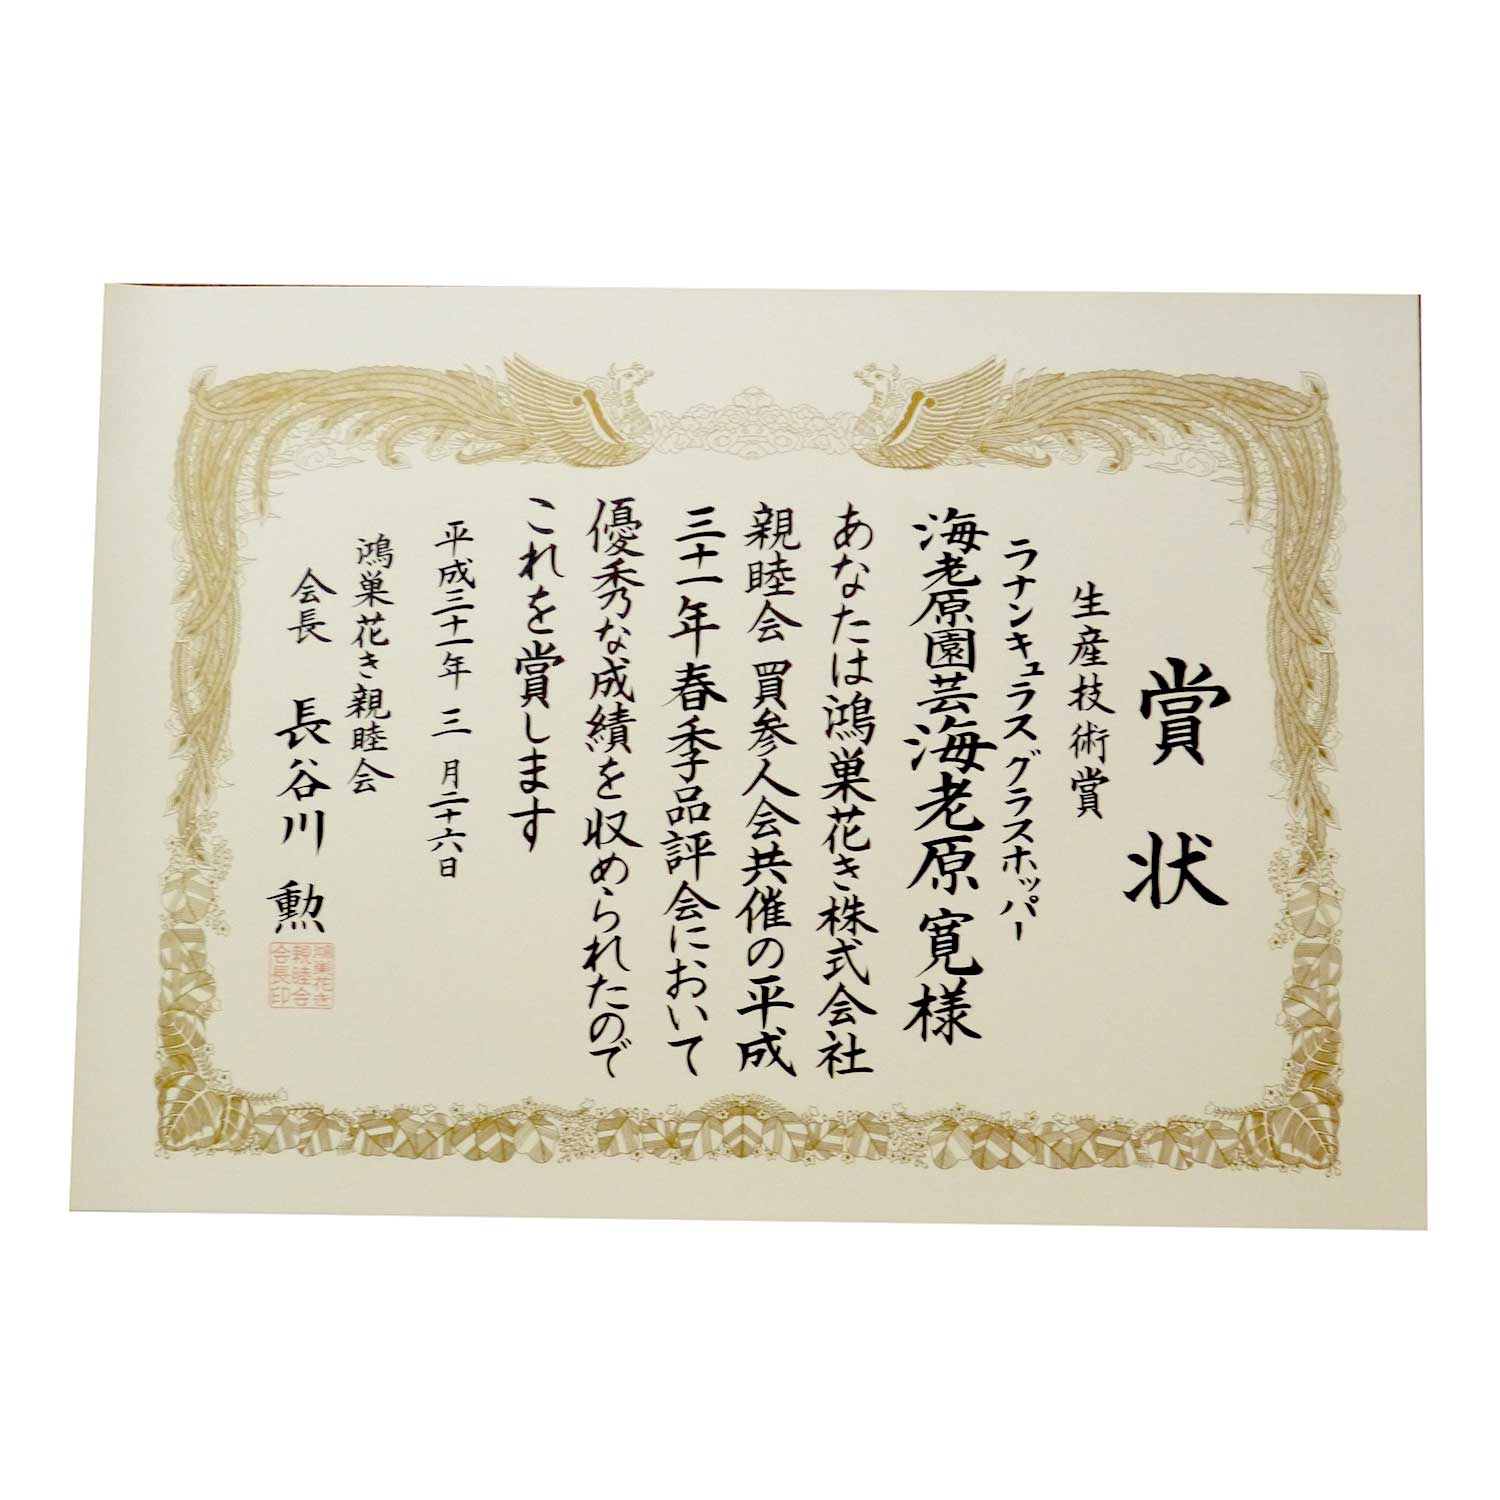 賞状
生産技術賞
ラナンキュラスグラスホッパー
海老原園芸海老原寛様
あなたは鴻巣花き株式会社
親睦会買参人会共催の平成
三十一年春季品評会において
優秀な成績を収められたので
これを賞します
平成三十一年三月二十六日
鴻巣花き親睦会
会長 長谷川勲
鴻巣花き
親睦会
会長印